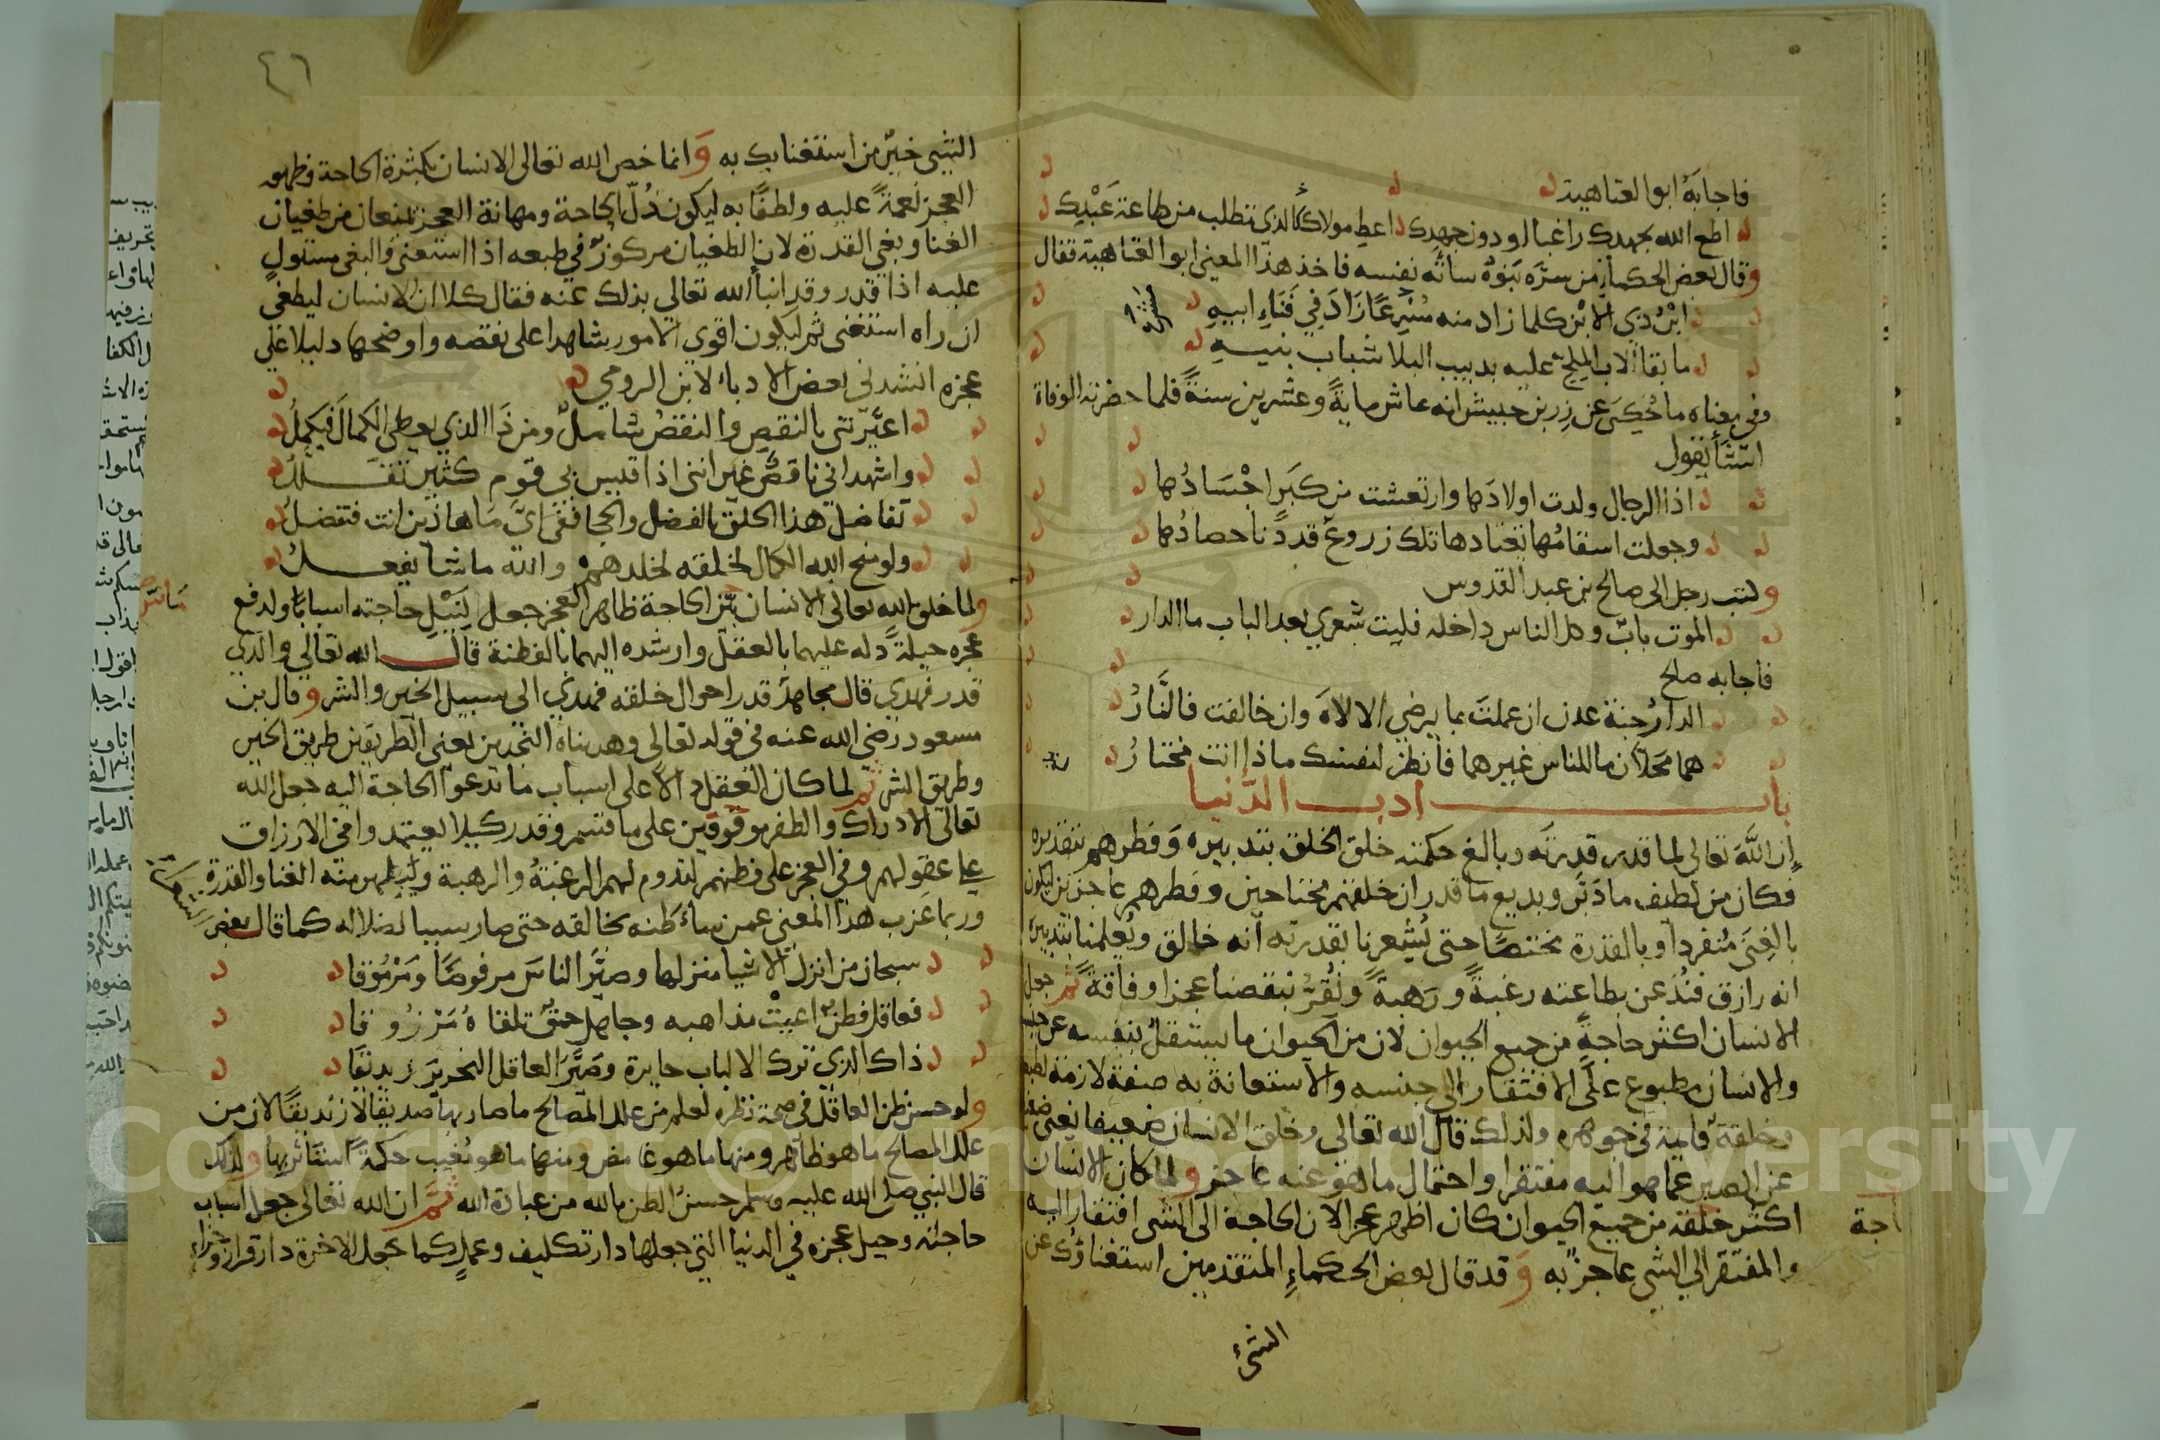 فاجابه ابوا لعتاهية
اطع الله بجهدك راغبا او دون جهدك اعط مولاك كالذي تطلب من طاعة عبديك
وقال بعض الحكماء من سره بنوه ساته نفسه فاخذ هذا المعني ابوا العتاهية فقال
ابن ذي الابن كلما زاد منه مشرعا زاد في فناء ابيه
ما بقا الاب الملح عليه بدبيب البلا شباب بنيه
وفي معناه ما حكي عن زر بن حبيش انه عاش ماية وعشرين سنة فلما حضرته الوفاة
انشا يقول
اذا الرجال ولدت اولادها وارتعشت من كبر اجسادها
وجعلت اسقامها تعتادها تلك زروع قد دنا حصادها
وكتب رجل الى صالح بن عبد القدوس
الموت باب وكل الناس داخله فليت شعري بعد الباب ما الدار
فاجابه صلح
الدار جنة عدن ان عملت بما يرضي الالاه وان خالفت فالنار
هما محلان ما للناس غيرهما فانظر لنفسك ماذا انت مختار
باب ادب الدنيا
ان الله تعالى لما قدر قدرته وبالغ حكمته خلق الخلق بتدبيره وفطرهم بتقديره
فكان من لطيف ما دبر وبديع ما قدر ان خلقهم محتاجين وفطرهم عاجزين ليكون
بالغنى منفردا وبالقدرة مختصا حتى يشعرنا بقدرته انه خالق ويعلمنا
انه رازق فنذعن بطاعته رغبة ورهبة ونقر بنقصنا عجزا وفاقة ثم جعل
الانسان اكثر حاجة من جميع الحيوان لان من الحيوان ما يستقل بنفسه عن جنسه
والانسان مطبوع على الافتقار الى جنسه والاستعانة به صفة لازمة لطبعه
وخلقة قايمة في جوهره ولذلك قال الله تعالى وخلق الانسان ضعيفا يعني ضعفا
عن الصبر عما هو اليه مفتقرا واحتمال ما هو عنه عاجز ولما كان الانسان
اكثر خلقه من جميع الحيوان كان اظهر عجزا لان الحاجة الى الشي افتقار اليه
اجة
والمفتقر الى الشي عاجز به وقد قال بعض الحكماء المتقدمين استغناؤك عن
الشيء
٤٦
الشي خير من استغنايك به وانما خص الله تعالى الانسان بكثرة الحاجة وظهور
العجز نعمة عليه ولطفا به ليكون ذل الحاجة ومهانة العجز يمنعان من طغيان
الغنا وبغي القدرة لان الطغيان مركوز في طبعه اذا استغنى والبغي مستول
عليه اذا قدر وقد انبا الله تعالي بذلك عنه فقال كلا ان الانسان ليطغي
ان راه استغنى ثم ليكون اقوي الامور شاهدا على نقصه واوضحها دليلا علي
عجزه انشدني بعض الادباء لابن الرومي
اعيرتني بالنقص والنقص شامل ومن ذا الذي يعطى الكمال فيكمل
واشهد اني ناقص غير انني اذا قيس بي قوم كثير تقللوا
تفاضل هذا الخلق بالفضل والحجا ففي اي ما هاذين انت فتفضل
ولو منح الله الكمال لخلقه لخلدهم والله ما شا يفعل
ولما خلق الله تعالى الانسان ماس الحاجة ظاهر العجز جعل لنيل حاجته اسبابا ولدفع
عجزه حيلة دله عليهما بالعقل وارشده اليهما بالفطنة قال الله تعالي والذي
قدر فهدي قال مجاهد قدر احوال خلقه فهدي الى سبيل الخير والشر وقال بن
مسعود رضي الله عنه في قوله تعالى وهديناه النجدين يعني الطريقين طريق الخير
وطريق الشر ثم لما كان العقل دالا على اسباب ما تدعوا الحاجة اليه جعل الله
تعالى الادراك والظفر موقوفين على ما قسم وقدر كيلا يعتمدوا في الارزاق
علي عقولهم وفي العجز على فطنهم لتدوم لهم الرغبة والرهبة ويظهر منه الغنا والقدرة
وربما عزب هذا المعني عمن ساء ظنه بخالقه حتى صار سببا لضلاله كما قال بعض
سبحان من انزل الاشيا منزلها وصير الناس مرفوضا ومرموقا
فعاقل فطن اعيت مذاهبه وجاهل حمق تلقاه مرزوقا
ذاك الذي ترك الالباب حايرة وصير العاقل النحرير زنديقا
ولو حسن ظن العاقل في صحة نظره لعلم من علل المصالح ما صار به صديقا لا زنديقا لان من
علل المصالح ما هو ظاهر ومنها ما هو غامض ومنها ما هو مغيب حكمة استاثر بها ولذلك
قال النبي صلى الله عليه وسلم حسن الظن بالله من عبادة الله ثم ان الله تعالى جعل اسباب
حاجته وحيل عجزه في الدنيا التي جعلها دار تكليف وعمل كما جعل الاخرة دار قرار وجزاء